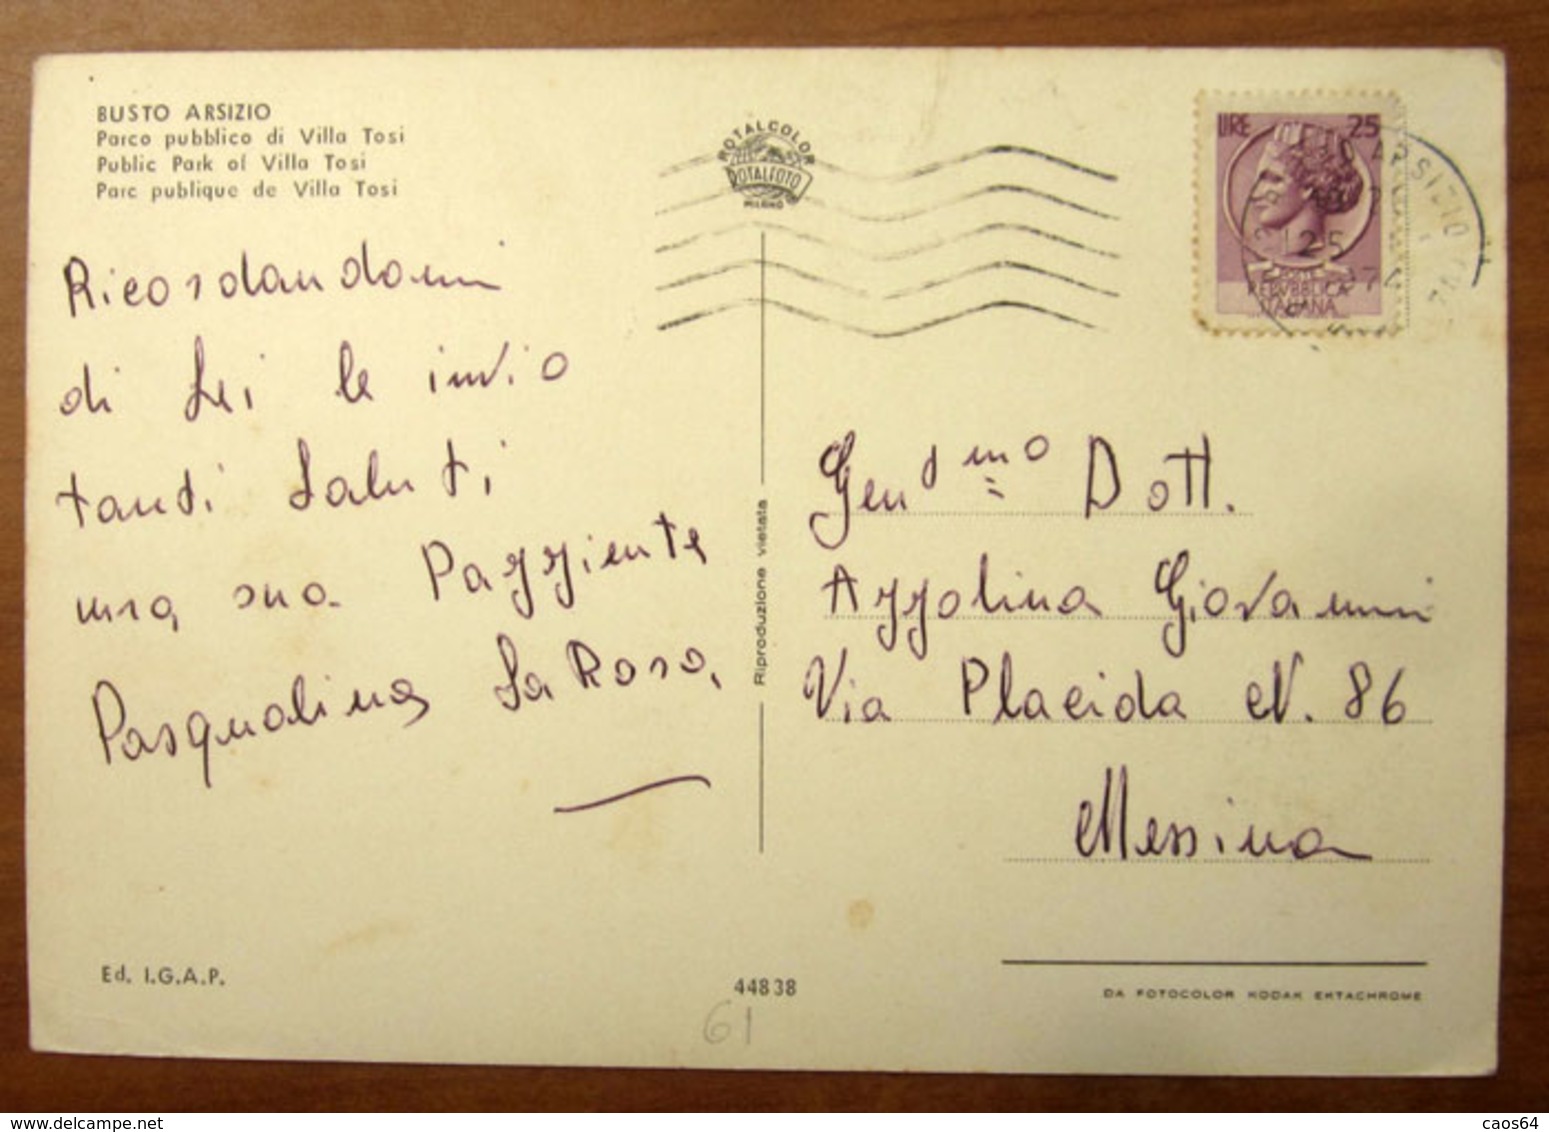 BUSTO ARSIZIO
Parco pubblico di Villa Tosi
Public Park of Villa Tosi
Parc publique de Villa Tosi
ROTALCOLOR
ROTALFOTO
MILANO
LIRE 25
REPVBBLICA
ITALIANA
Ricordandomi
di Lei le invio
tanti Saluti
una sua Pazziente
Pasqualina La Rosa,
Riproduzione vietata
Gent.mo Dott.
Azzolina Giovanni
Via Placida N. 86
Messina
Ed. I.G.A.P.
44838
61
DA FOTOCOLOR KODAK EKTACHROME
delcampe.net
caos64